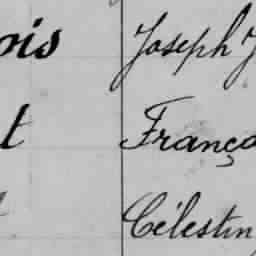 ois Joseph J
t França
Célestin